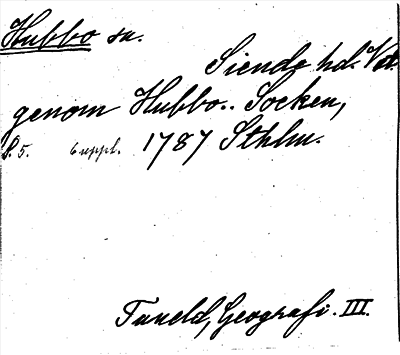 Hubbo sn.
Siende hd. Vstm.
genom Hubbo.. Socken,
S. 5. 6 uppl. 1787 Sthlm.
Tuneld, Geografi. III.